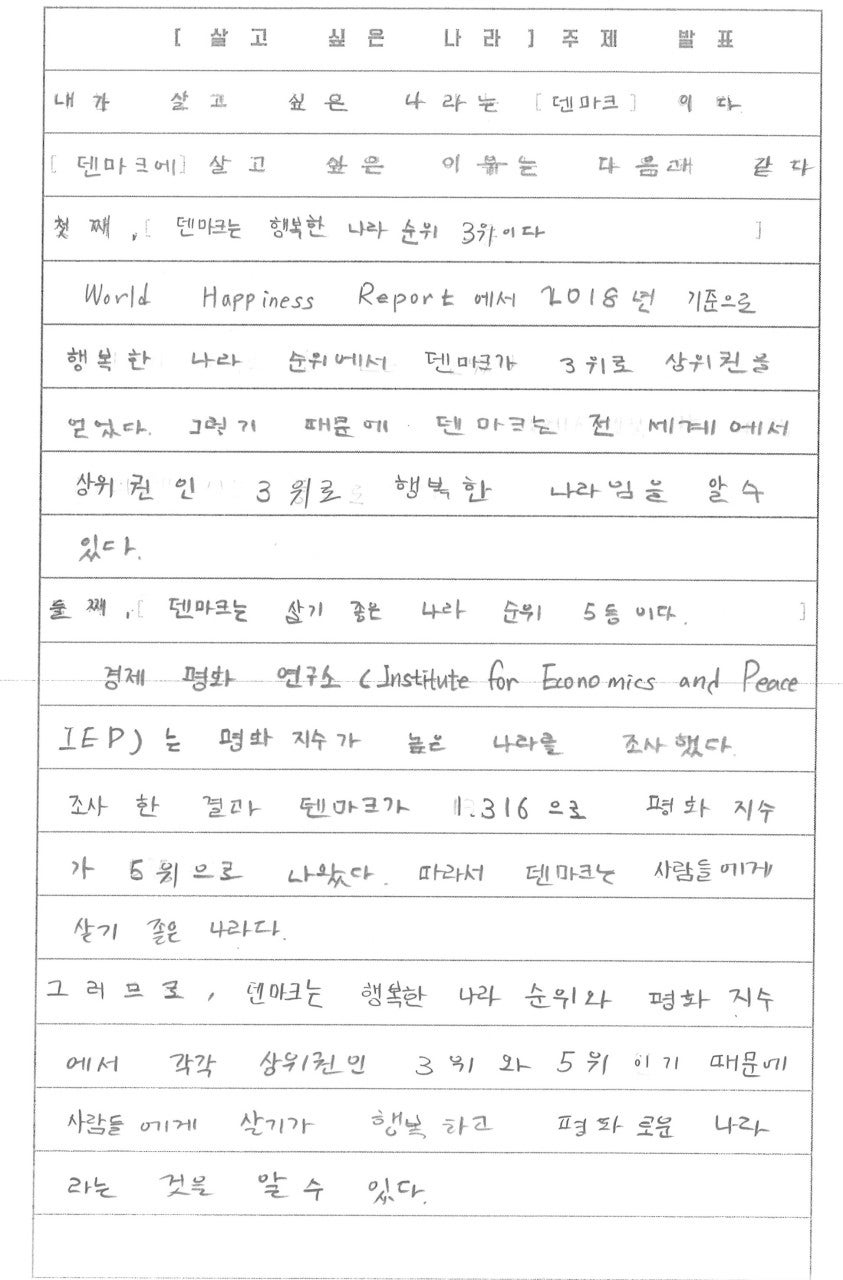 [ 살고 싶은 나라 ] 주제 발표
내가 살고 싶은 나라는 [ 덴마크 ] 이다
[ 덴마크에 ] 살고 싶은 이유는 다음과 같다
첫째, [ 덴마크는 행복한 나라 순위 3위이다 ]
World Happiness Report에서 2018년 기준으로
행복한 나라 순위에서 덴마크가 3위로 상위권을
얻었다. 그렇기 때문에 덴마크는 전 세계에서
상위권인 3위로 행복한 나라임을 알 수
있다.
둘째, [ 덴마크는 살기 좋은 나라 순위 5등이다. ]
경제 평화 연구소 (Institute for Economics and Peace
IEP)는 평화 지수가 높은 나라를 조사했다.
조사 한 결과 덴마크가 1.316으로 평화 지수
가 5위으로 나왔다. 따라서 덴마크는 사람들에게
살기 좋은 나라다.
그러므로, 덴마크는 행복한 나라 순위와 평화 지수
에서 각각 상위권인 3위와 5위이기 때문에
사람들에게 살기가 행복하고 평화로운 나라
라는 것을 알 수 있다.